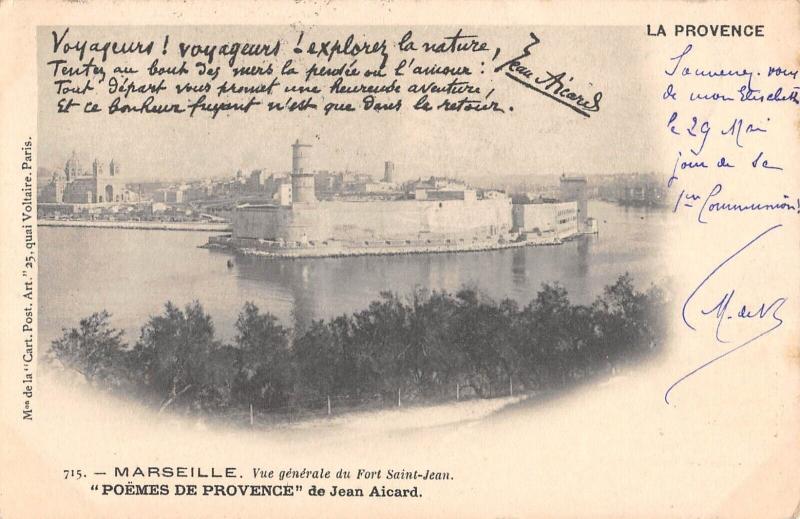 LA PROVENCE
Voyageurs ! voyageurs ! explorez la nature,
Tentez au bout des mers la pensée ou l'amour :
Tout départ vous promet une heureuse aventure,
Et ce bonheur fuyant n'est que dans le retour.
Jean Aicard
Souvenez-vous
de mon
le 29 Mai
jour de sa
1re Communion!
M. de
Mon de la "Cart. Post. Art." 25, quai Voltaire. Paris.
715. — MARSEILLE. Vue générale du Fort Saint-Jean.
"POËMES DE PROVENCE" de Jean Aicard.